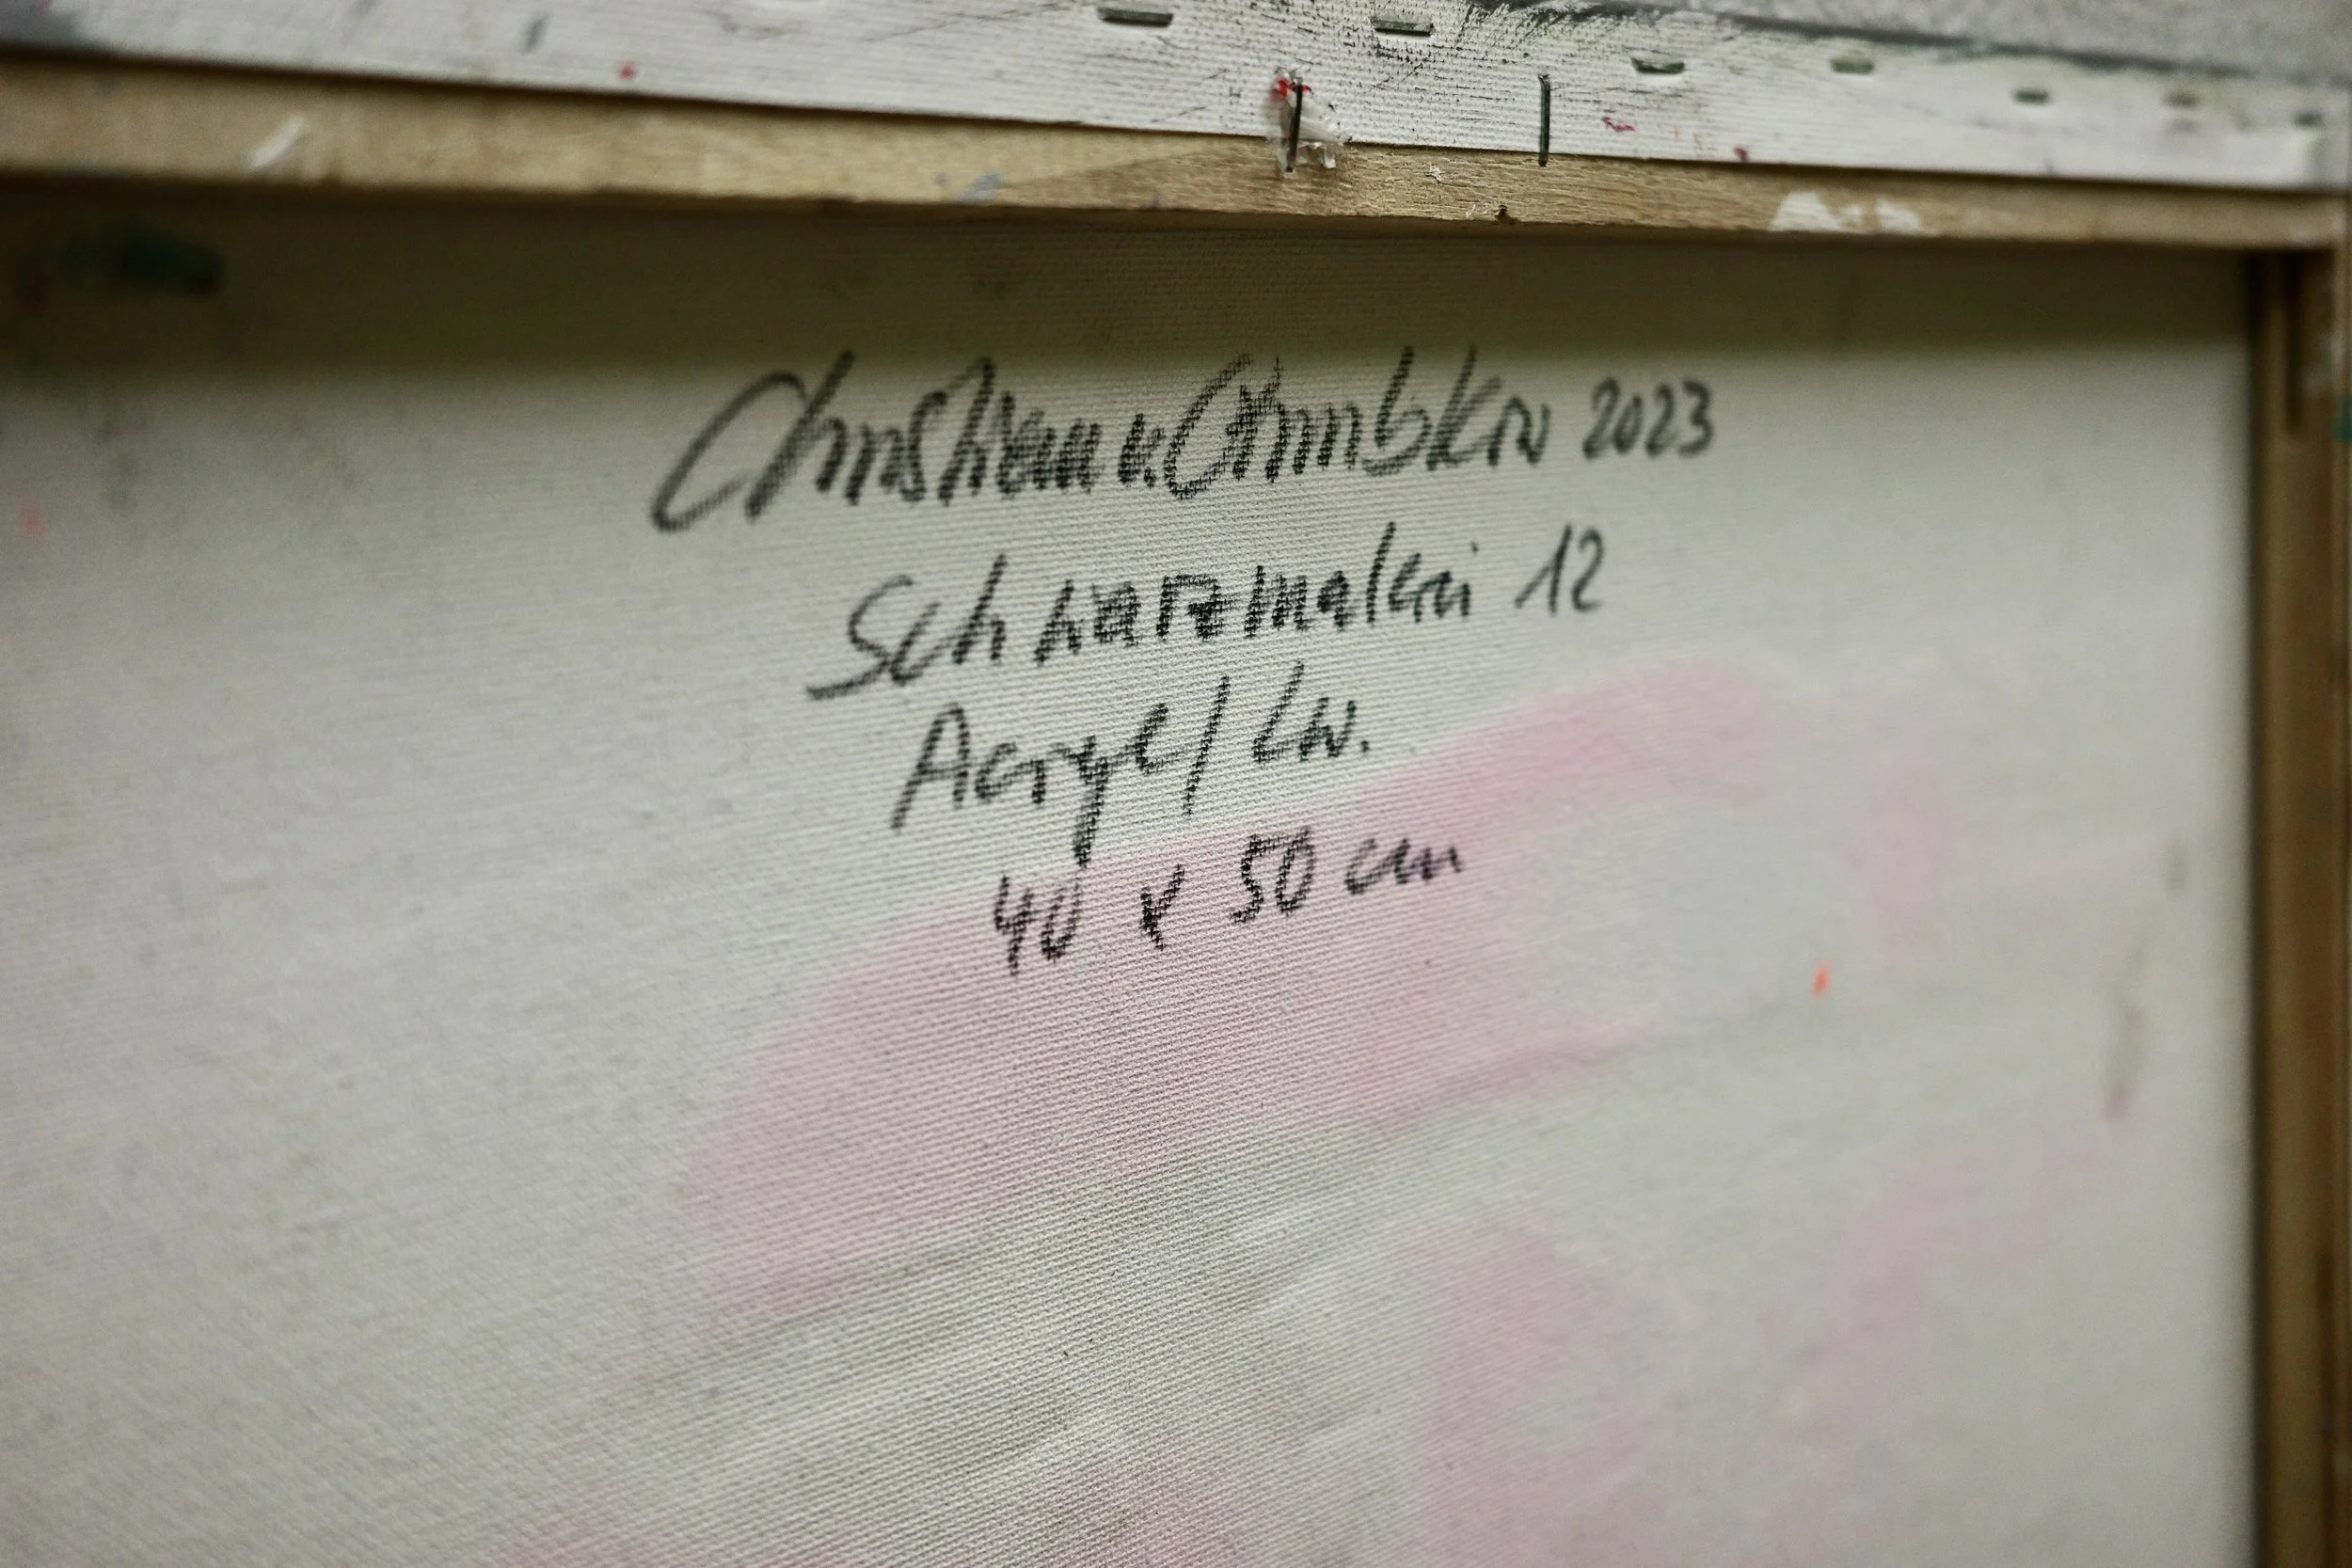 Christian v. Grumbkow 2023
Schwarzmalerei 12
Acryl / Lw.
40 x 50 cm